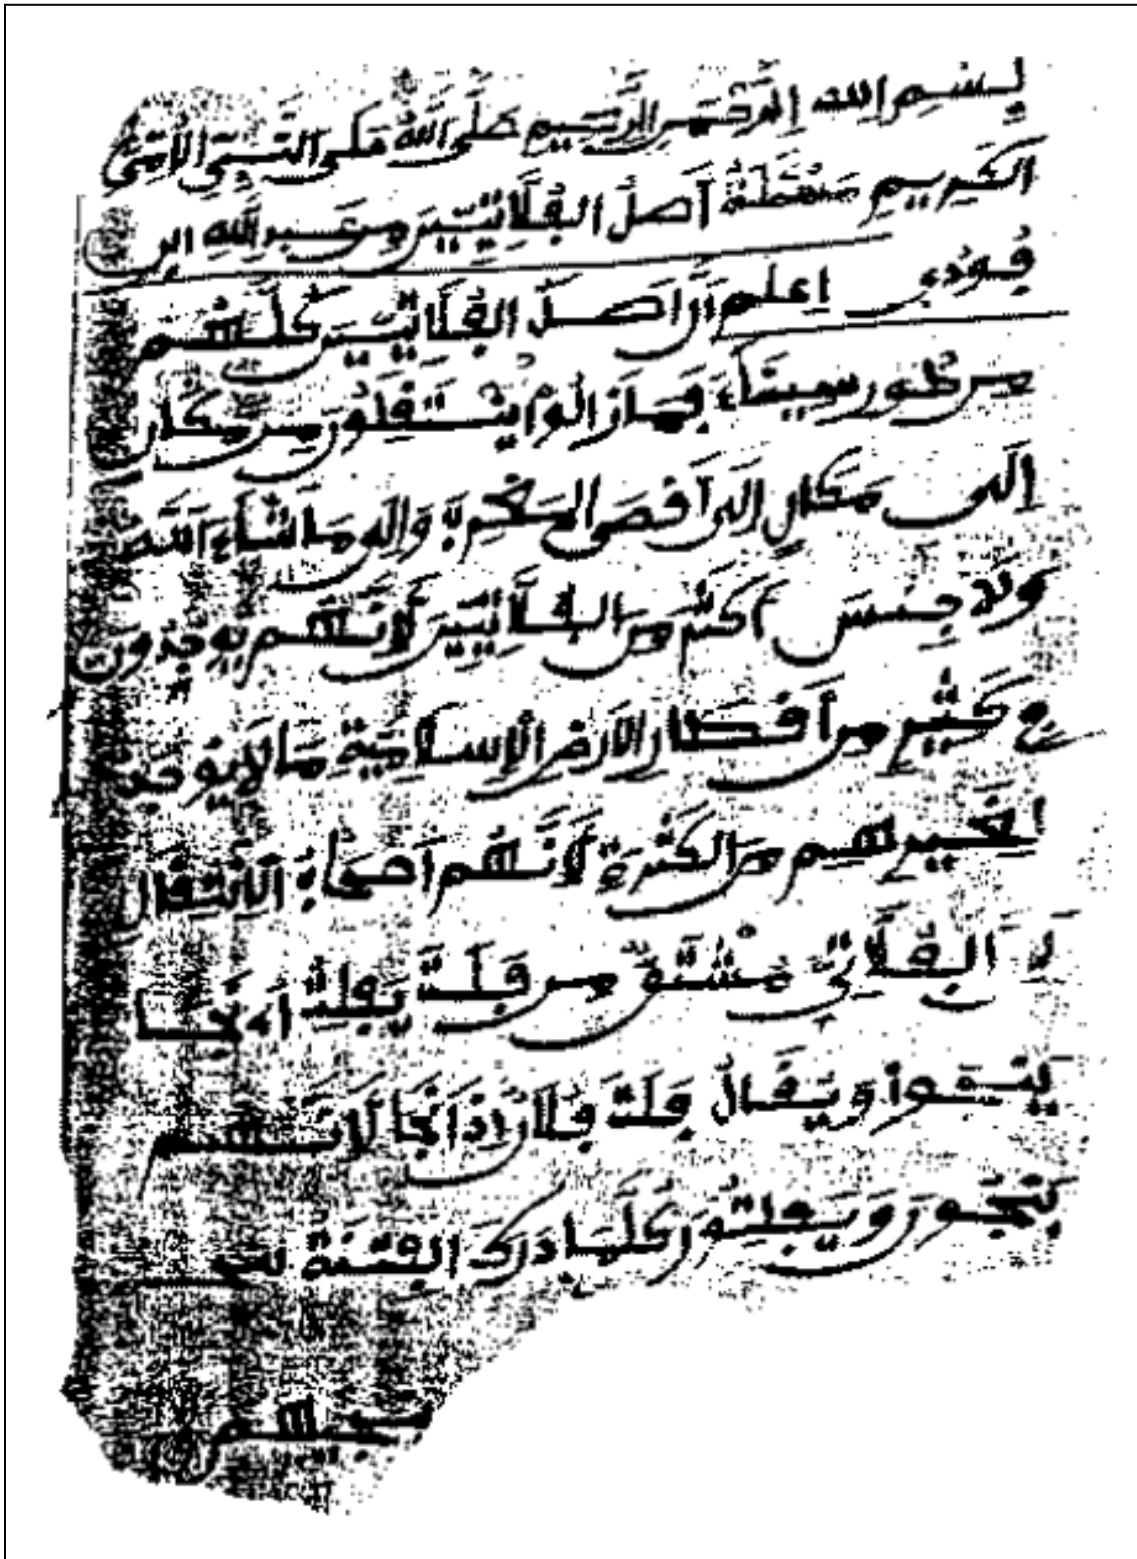 بسم الله الرحمن الرحيم صلى الله على النبي الأمي
الكريم أصل الفلاتيين من عبد الله ابن
فودي اعلم أن أصل الفلاتيين كلهم
من طور سيناء فما زالوا ينتقلون من مكان
إلى مكان إلى أقصى المغرب وإلى ما شاء الله
ولا جنس أكثر من الفلاتيين لأنهم يوجدون
في كثير من أقطار الأرض الإسلامية ما لا يوجد
لغيرهم من الكثرة لأنهم أصحاب الانتقال
لأن الفلاتي مشتق من فلت يفلت أي نجا
ينجوا ويقال فلت فلان إذا نجا لأنهم
ينجون ويفلتون كلما أدرك الفتنة